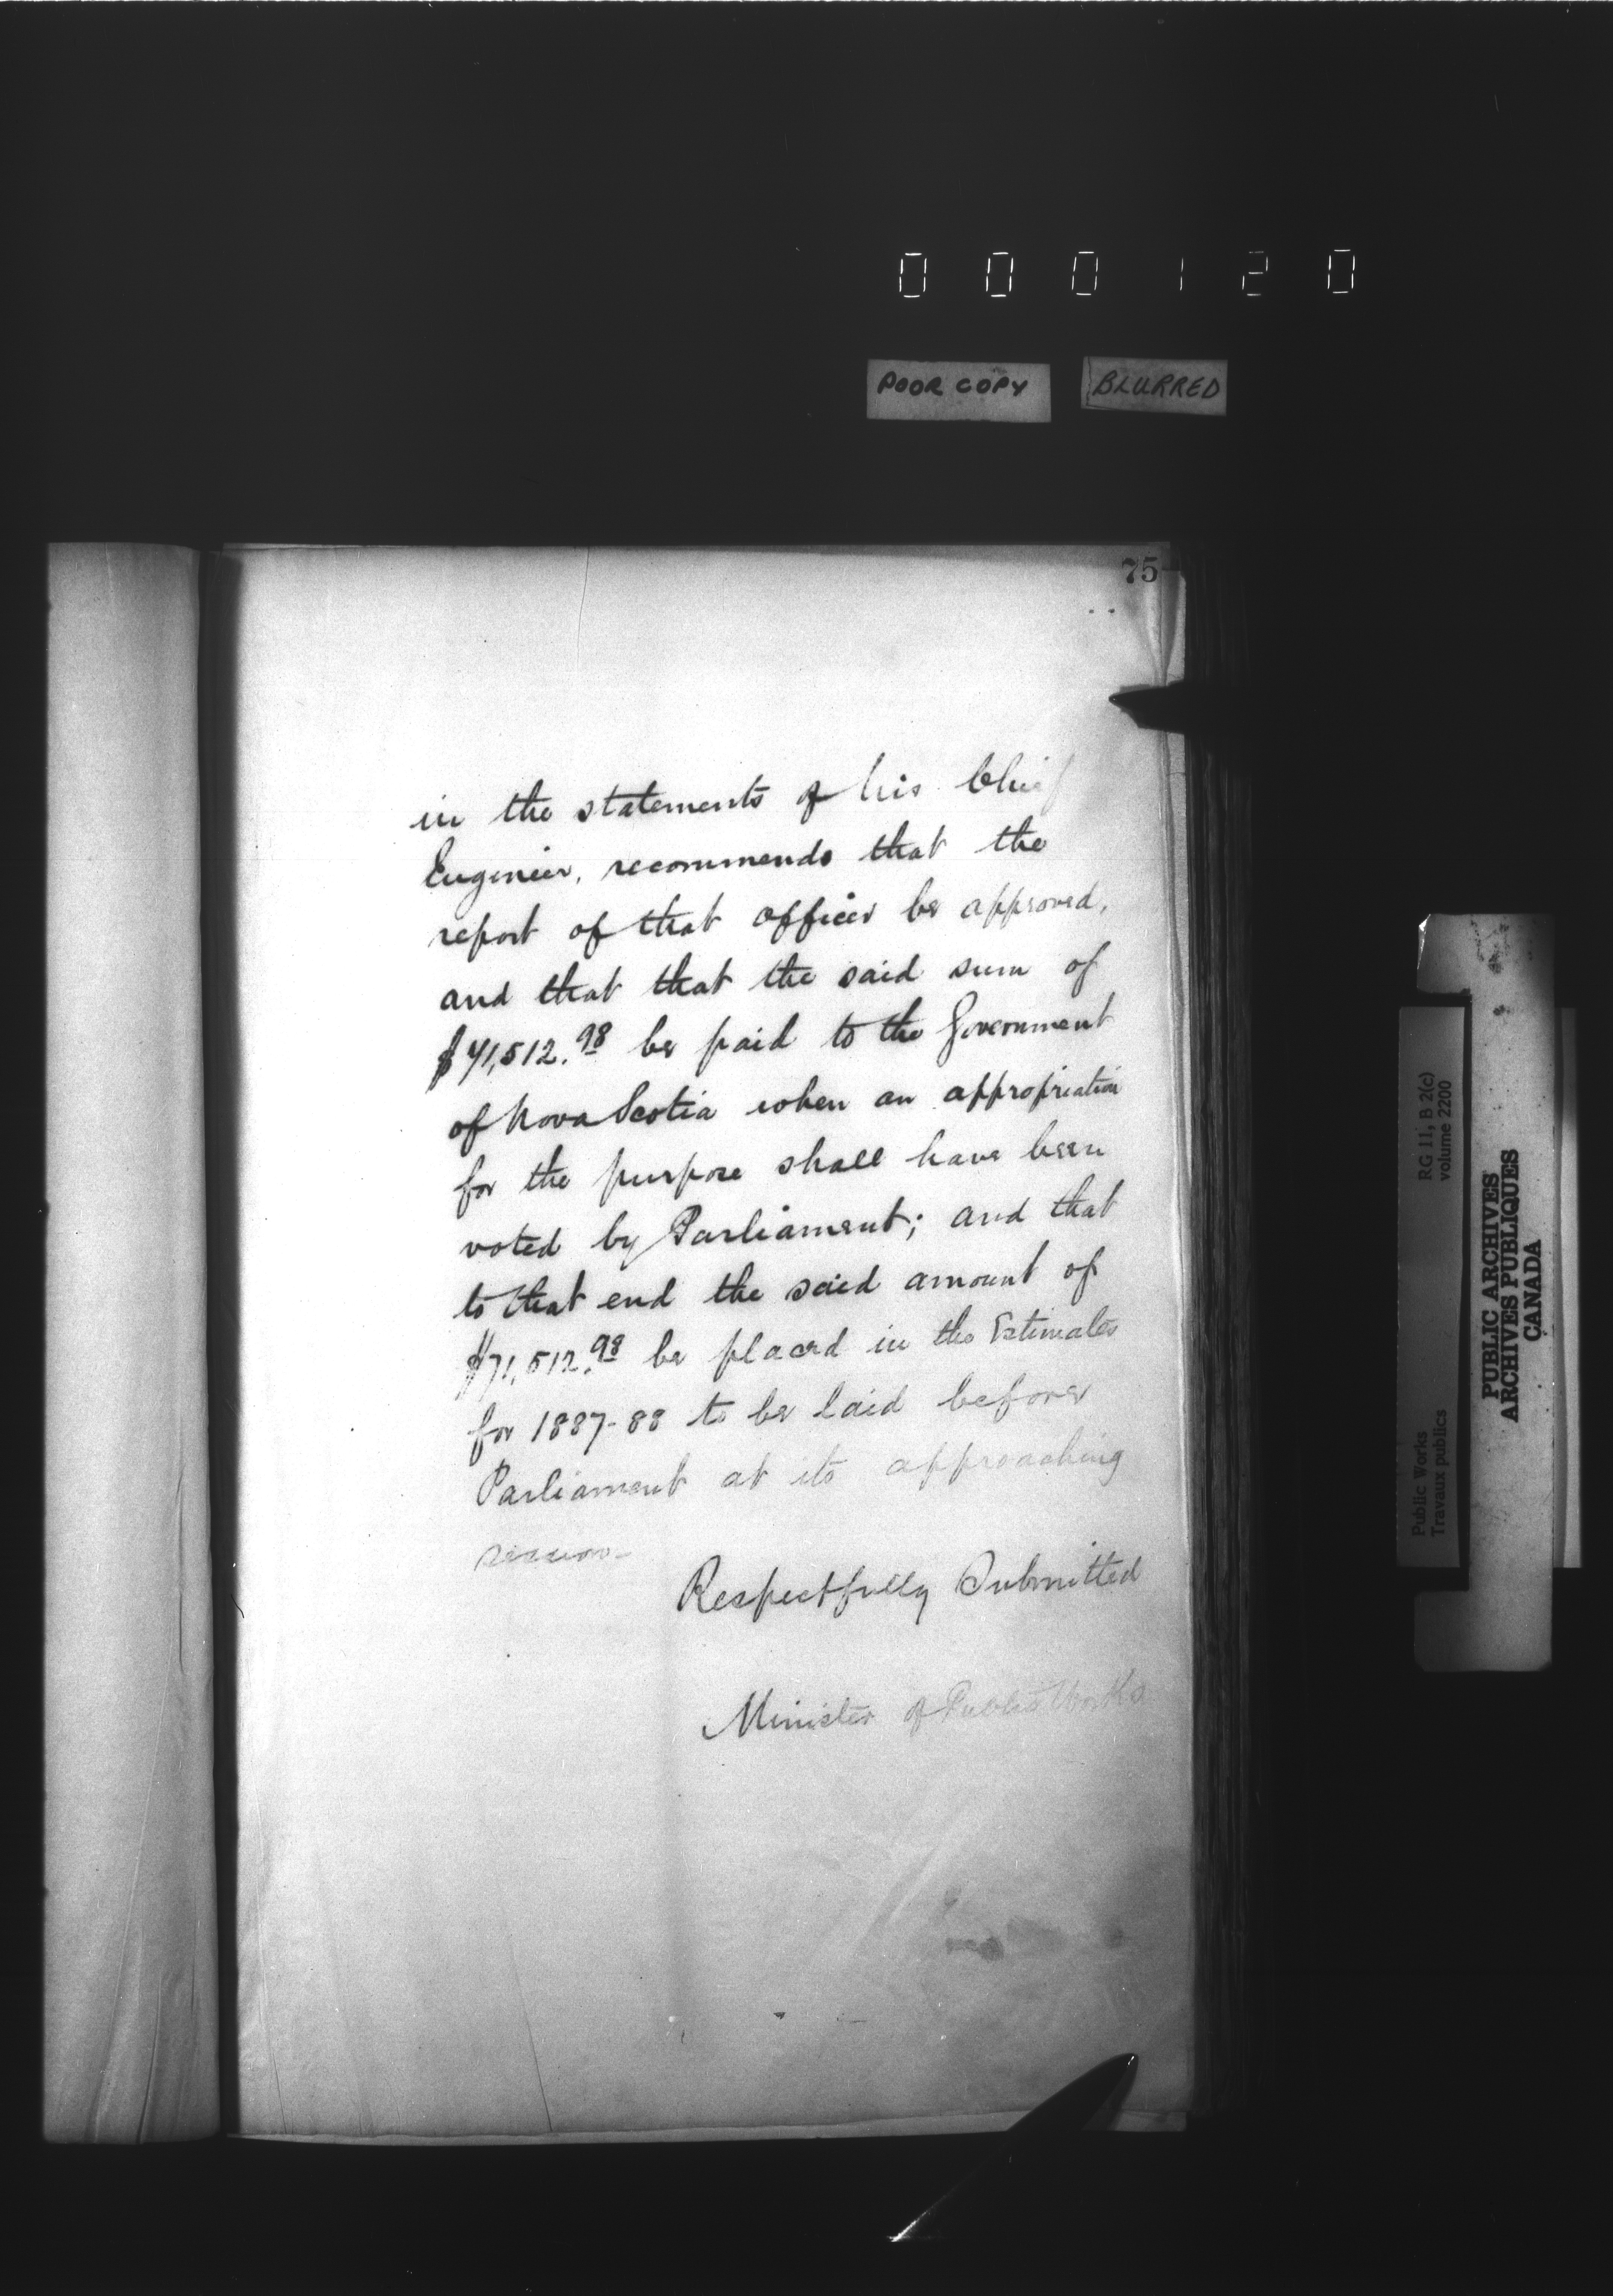 000120
POOR COPY BLURRED
75
in the statements of his Chief
Engineer, recommends that the
report of that officer be approved,
and that that the said sum of
$71,512.98 be paid to the Government
of Nova Scotia when an appropriation
for the purpose shall have been
voted by Parliament; and that
to that end the said amount of
$71,512.98 be placed in the Estimates
for 1887-88 to be laid before
Parliament at its approaching
session-
Respectfully Submitted
Minister of Public Works
RG 11, B 2(c)
volume 2200
Public Works
Travaux publics
PUBLIC ARCHIVES
ARCHIVES PUBLIQUES
CANADA